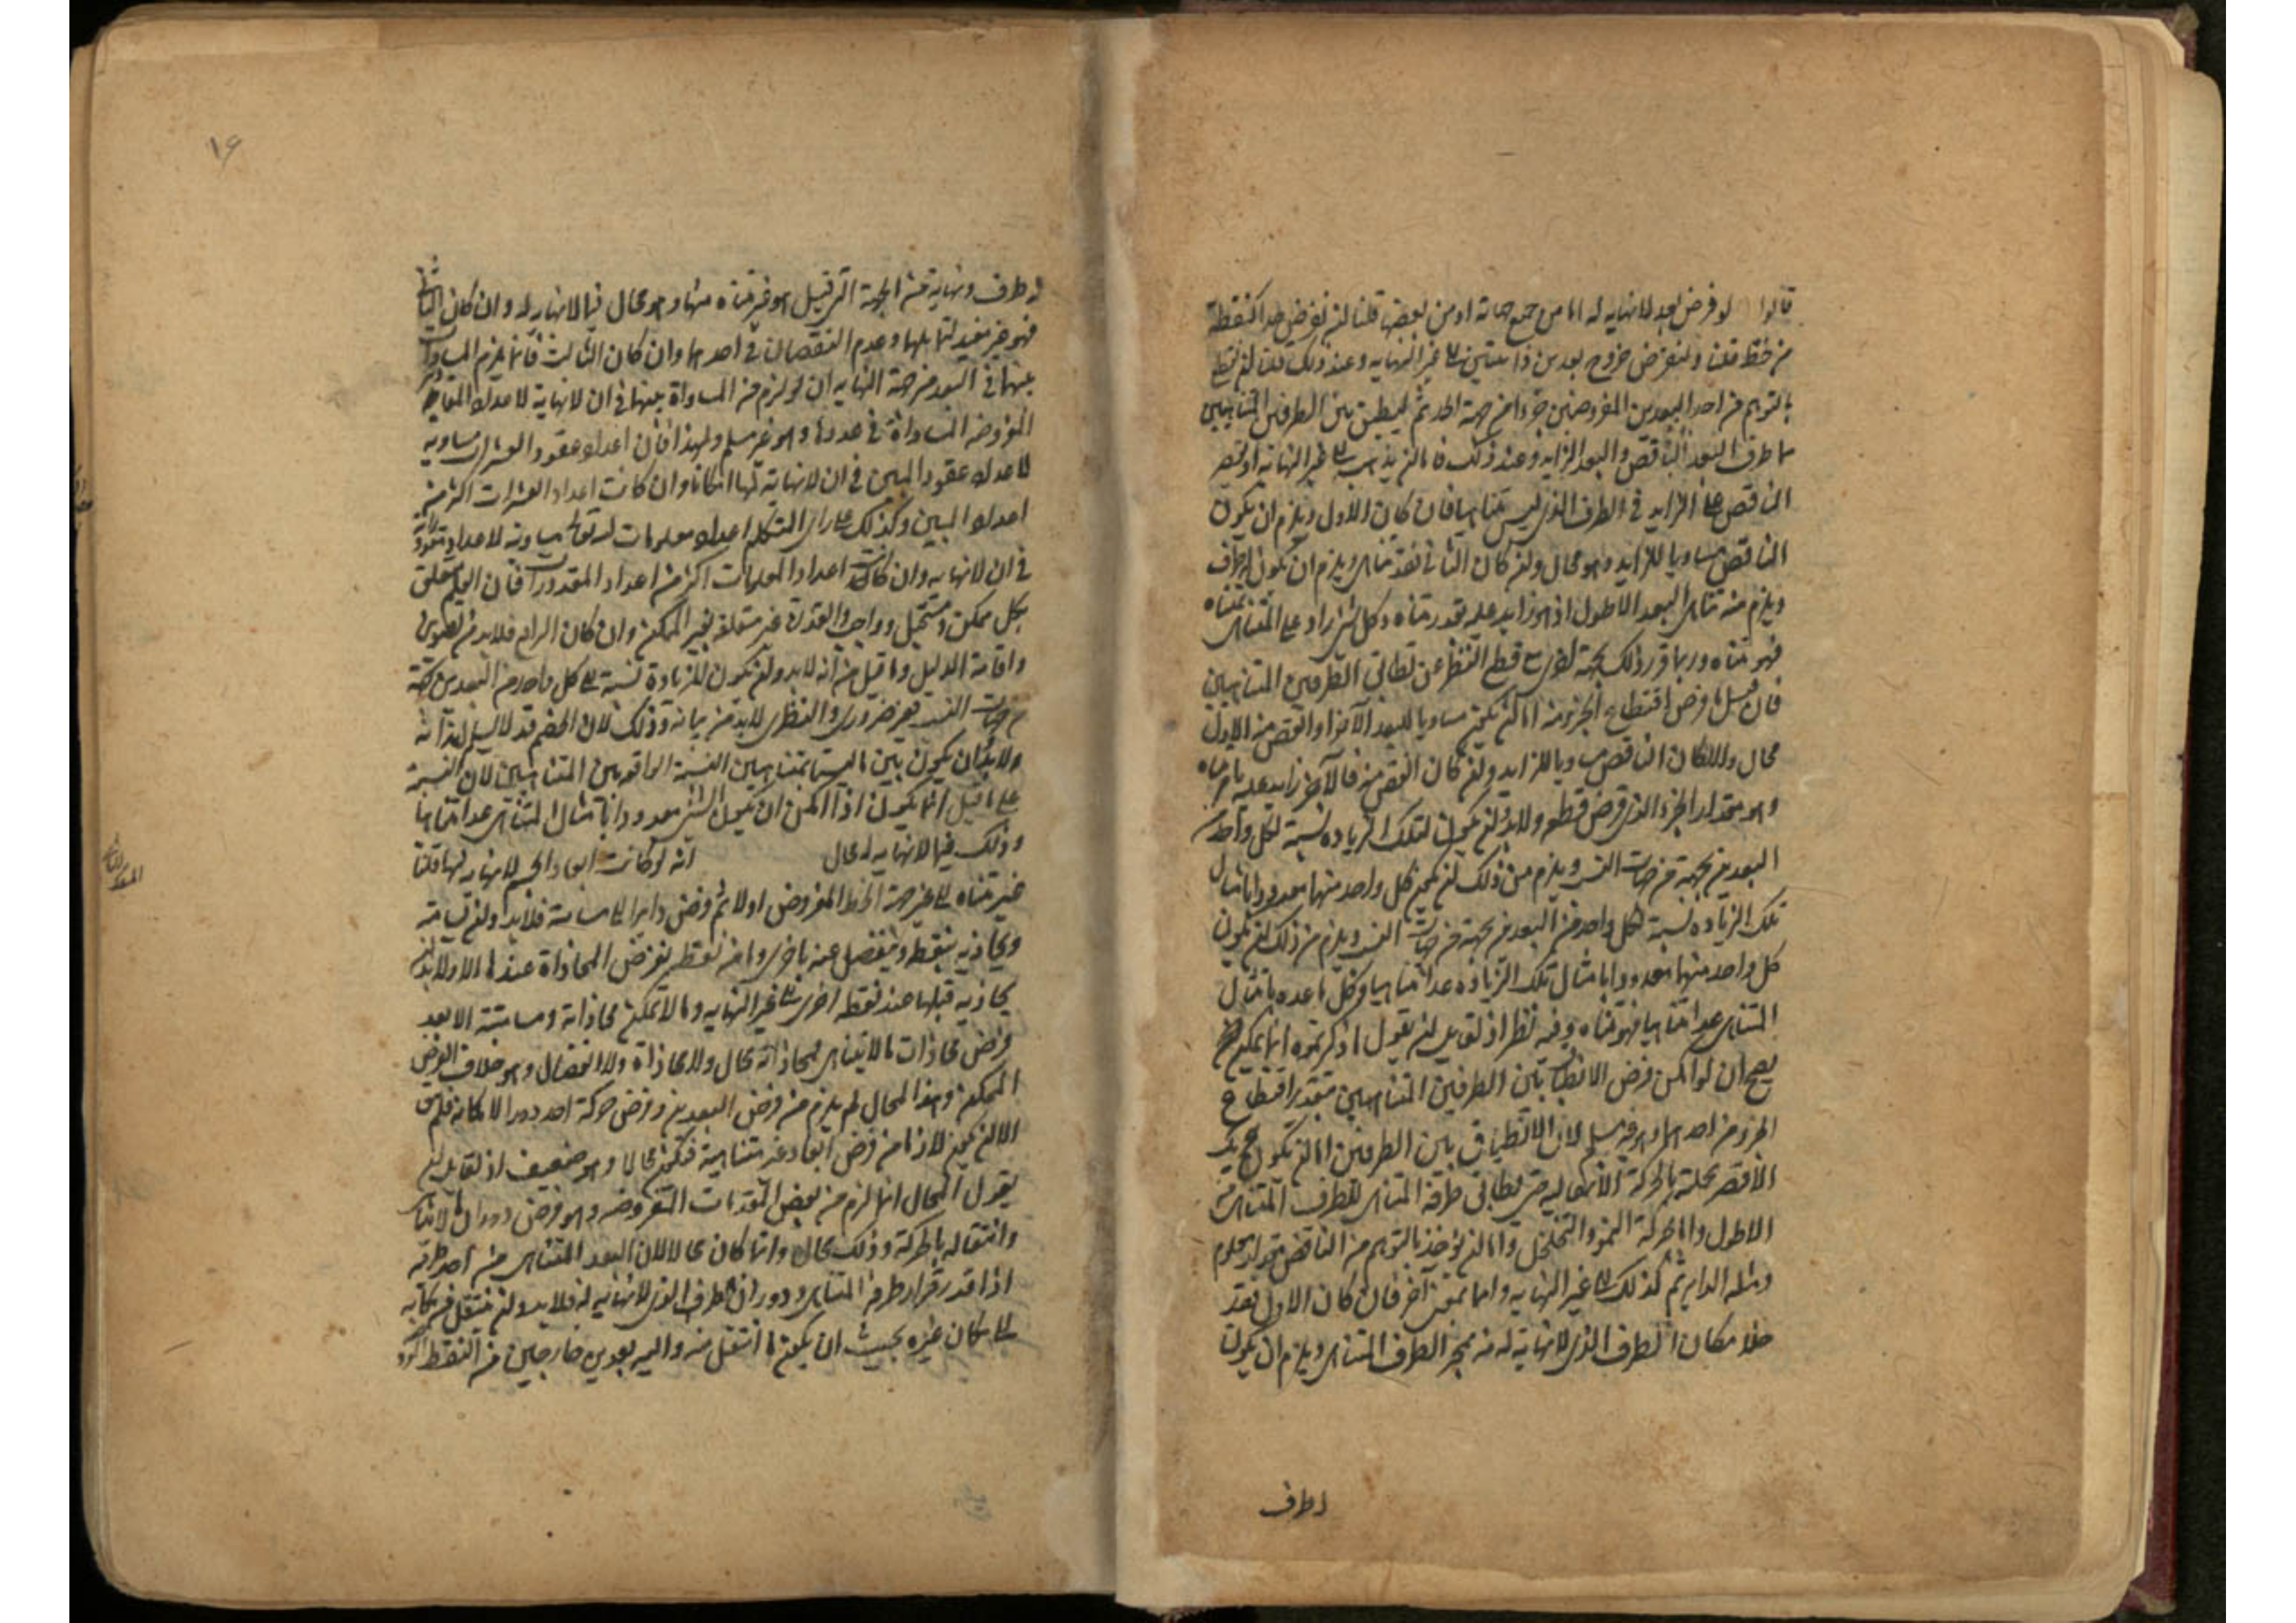 قالوا لو فرض بعد لا نهاية له اما من جميع جهاته او من بعضها قلنا ان نفرض حدا كنقطة
من خط قلنا ولنفرض خروج بعدين ذاهبين الى غير النهاية وعند ذلك قلنا ان نقطع
بالتوهم من احد البعدين المفروضين جزءا من جهة الحد ثم ليطبق بين الطرفين المتناهيين
طرف البعد الناقص والبعد الزايد وعند ذلك فاما ان يذهب الى غير النهاية او يقصر
الناقص عن الزايد في الطرف الذي ليس متناهيا فان كان الاول ويلزم ان يكون
الناقص مساويا للزايد وهو محال وان كان الثاني فقد تناهى ويلزم ان يكون له طرف
ويلزم منه تناهي البعد الاطول اذ هو زايد عليه بقدر متناه وكل شي زاد على المتناهي بمتناه
فهو متناه وربما قرر ذلك بجهة اخرى مع قطع النظر عن تطابق الطرفين المتناهيين
فان قيل ما فرض اقتطاع الجزء منه اما ان يكون مساويا للبعد الآخر او انقص منه الاول
محال والا لكان الناقص مساويا للزايد وان كان انقص منه فالآخر زايد عليه بامر متناه
وهو مقدار الجزء الذي فرض قطعه ولا بد ان يكون لتلك الزياده نسبة لكل واحد من
البعدين بجهة من جهات النسب ويلزم من ذلك ان يكون كل واحد منهما معدودا بامثال
تلك الزياده نسبة لكل واحد من البعدين بجهة من جهات النسب ويلزم من ذلك ان يكون
كل واحد منهما معدودا بامثال تلك الزياده عدا متناهيا وكل ما عده بامثال
المتناهي عدا متناهيا فهو متناه وفيه نظر اذ لقايل ان يقول ما ذكرتموه انما يكون
يصح ان لو امكن فرض الانطباق بين الطرفين المتناهيين بتقدير اقتطاع
الجزء من احدهما وهو غير مسلم لان الانطباق بين الطرفين اما ان يكون
الاقصر بحملته بالحركة الانتقاليه حتى يطابق طرفه المتناهي للطرف المتناهي من
الاطول واما بحركة النمو والتخلخل واما ان يؤخذ بالتوهم من الناقص
ومثله الزايد ثم كذلك الى غير النهايه واما بمعنى آخر فان كان الاول فقد
خلا مكان الطرف الذي لا نهاية له منه بجر الطرف المتناهي ويلزم ان يكون
له طرف
١٤
له طرف ونهاية من الجهة التي قيل هو غير متناه منها وهو محال فيما لا نهاية له وان كان الثاني
فهو غير مفيد لتقابلهما وعدم النقصان في احدهما وان كان الثالث فانما يلزم المساواة
بينهما في البعد من جهة النهايه ان لو لزم من المساواة بينهما في ان لا نهاية لاعداد المقادير
المفروضه المساواة في عددها وهو غير مسلم ولهذا فان اعداد عقود العشرات مساوية
لاعداد عقود المئين في ان لا نهاية لها امكانا وان كانت اعداد العشرات اكثر من
اعداد المئين وكذلك على راى المتكلم اعداد معلومات الله تعالى مساوية لاعداد مقدوراته
في ان لا نهايه وان كانت اعداد المعلومات اكثر من اعداد المقدورات فان العلم متعلق
بكل ممكن ومستحيل وواجب والقدرة غير متعلقة بغير الممكن وان كان الرابع فلا بد من تصويره
واقامة الدليل وما قيل من أنه لا بد وان يكون للزيادة نسبة الى كل واحد من البعدين بجهة
من جهات النسب غير ضروري والنظري لا بد من بيانه وذلك لان الخصم قد لا يسلم انه
ولا بد ان يكون بين ما ليسا بمتناهيين النسبة الواقعه بين المتناهيين لان النسبة
على ما قيل انما يكون اذا امكن ان يكون الشي معدودا بامثال المتناهي عدا متناهيا
وذلك فيما لا نهايه له محال انه لو كانت ابعاد الجسم لا نهايه لها قلنا
غير متناه الى غير جهة الخط المفروض اولا ثم فرض دايرا الى مسامتة فلا بد وان يسامته
ويحاذيه بنقطه وينفصل عنه باخرى وما من نقطه نفرض المحاذاة عندها الا ولا بد ان
يحاذيه قبلها عند نقطه اخرى الى غير النهايه وما لا يمكن محاذاته ومسامتته الا بعد
فرض محاذات ما لا يتناهى فمحاذاته محال ولا محاذاة ولا انفصال وهو خلاف الفرض
الممكن وهذا المحال لم يلزم من فرض البعدين وفرض حركة احدهما دورا لامكانه فلم يبق
الا ان يكون لازما من فرض ابعاد غير متناهية فتكون محالا وهو ضعيف اذ لقايل ان
يقول المحال انما لزم من بعض المقدمات المفروضه وهو فرض دوران ما لا يتناهى
وانتقاله بالحركة وذلك محال وانما كان محالا لان البعد المتناهي من احد طرفيه
اذا قدر قرار طرفه المتناهي ودوران الطرف الذي لا نهايه له فلا بد وان ينتقل من مكانه
الى مكان غيره بحيث ان يكون ما انتقل منه واليه بعدين خارجين من النقطه